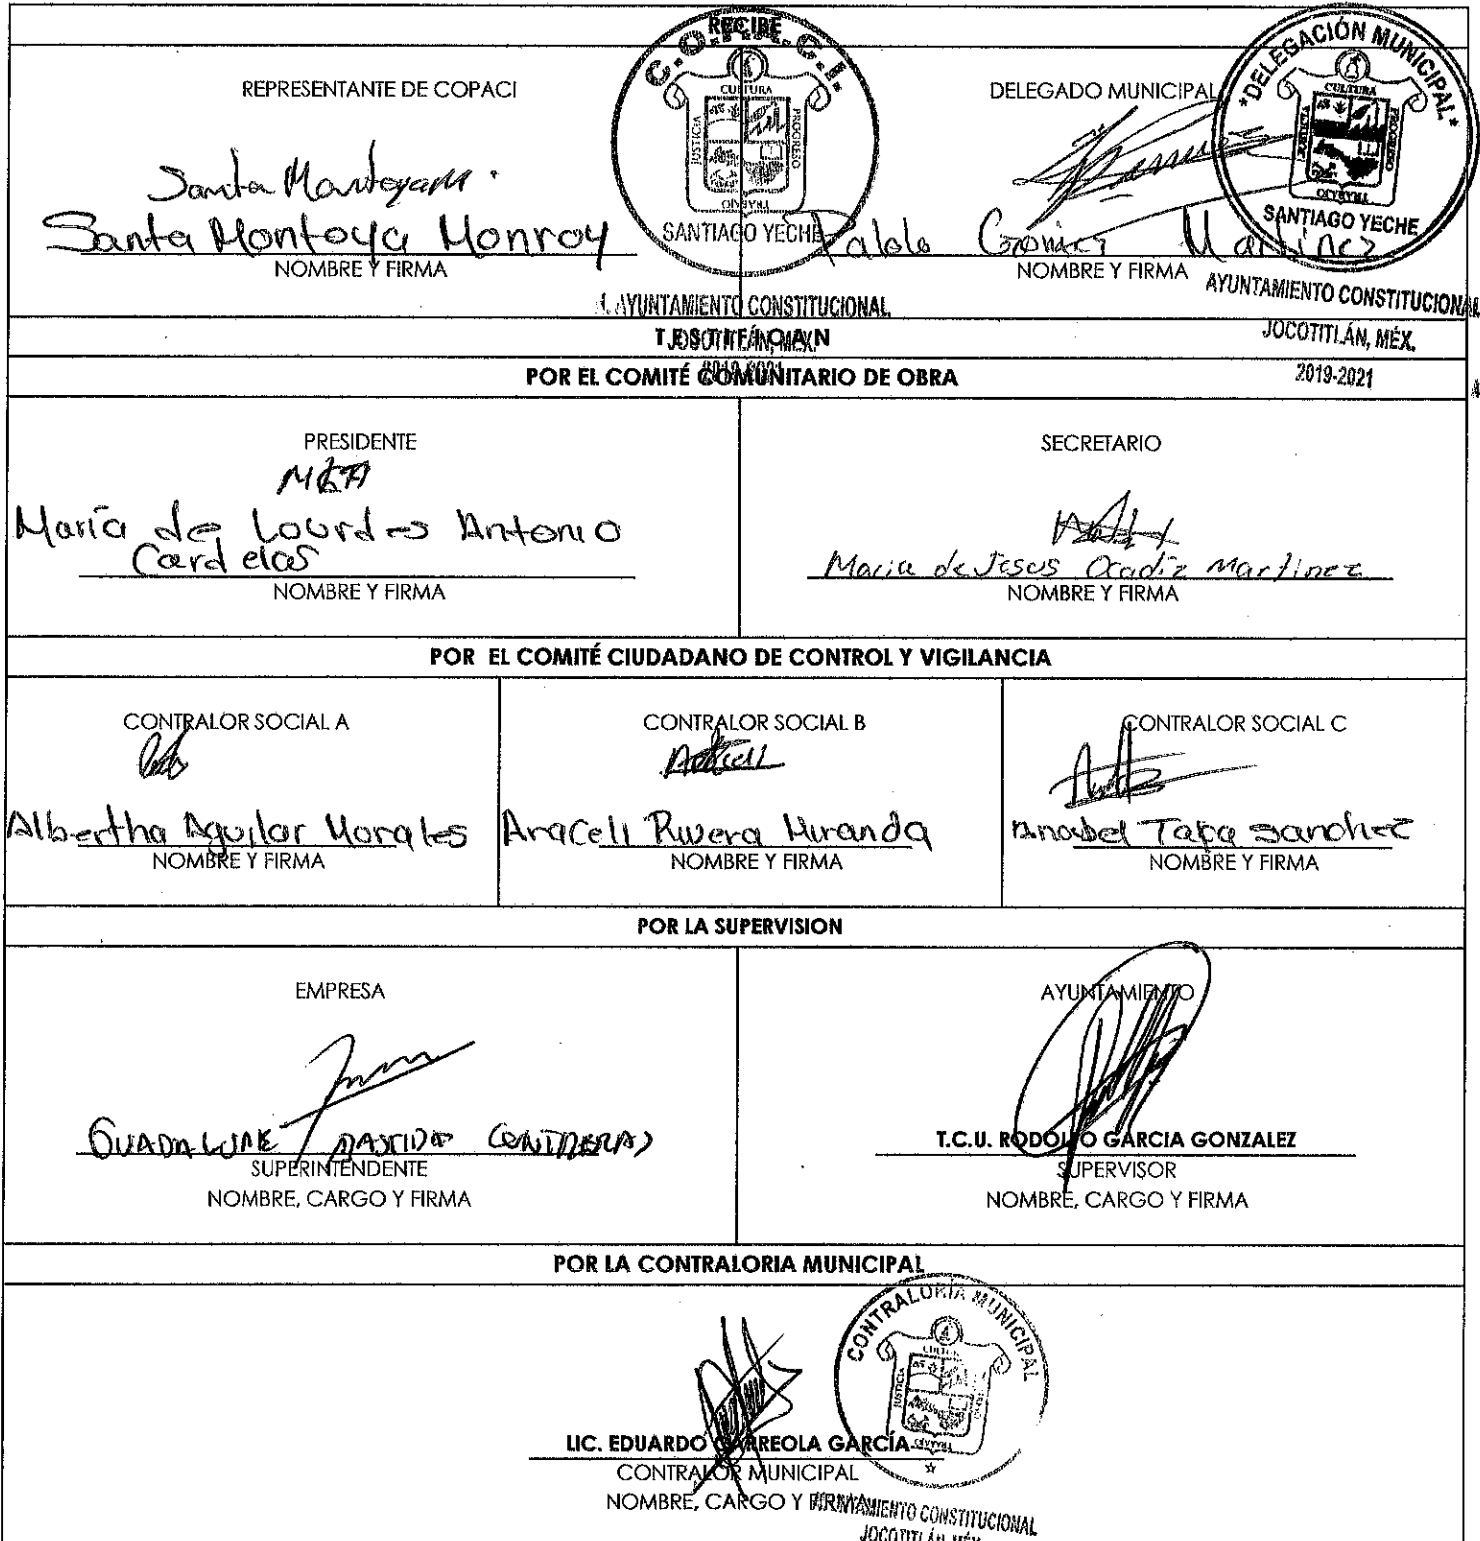 RECIBE
REPRESENTANTE DE COPACI
Santa Montoya M.
Santa Montoya Monroy
NOMBRE Y FIRMA
C.O.PA.C.I.
CULTURA
JUSTICIA
PROGRESO
TRABAJO
SANTIAGO YECHE
H. AYUNTAMIENTO CONSTITUCIONAL
JOCOTITLÁN, MÉX.
2019-2021
DELEGADO MUNICIPAL
Pablo Gómez Martínez
NOMBRE Y FIRMA
*DELEGACIÓN MUNICIPAL*
CULTURA
JUSTICIA
PROGRESO
TRABAJO
SANTIAGO YECHE
AYUNTAMIENTO CONSTITUCIONAL
JOCOTITLÁN, MÉX.
2019-2021
TESTIFICAN
POR EL COMITÉ COMUNITARIO DE OBRA
PRESIDENTE
María de Lourdes Antonio
Cardelas
NOMBRE Y FIRMA
SECRETARIO
Maria de Jesus Ocadiz Martinez
NOMBRE Y FIRMA
POR EL COMITÉ CIUDADANO DE CONTROL Y VIGILANCIA
CONTRALOR SOCIAL A
Albertha Aguilar Morales
NOMBRE Y FIRMA
CONTRALOR SOCIAL B
Araceli
Araceli Rivera Miranda
NOMBRE Y FIRMA
CONTRALOR SOCIAL C
Anabel Tapa Sanchez
NOMBRE Y FIRMA
POR LA SUPERVISION
EMPRESA
GUADALUPE BASTIDA CONTRERAS
SUPERINTENDENTE
NOMBRE, CARGO Y FIRMA
AYUNTAMIENTO
T.C.U. RODOLFO GARCIA GONZALEZ
SUPERVISOR
NOMBRE, CARGO Y FIRMA
POR LA CONTRALORIA MUNICIPAL
CONTRALORÍA MUNICIPAL
CULTURA
JUSTICIA
TRABAJO
LIC. EDUARDO CARREOLA GARCÍA
CONTRALOR MUNICIPAL
NOMBRE, CARGO Y FIRMA
AYUNTAMIENTO CONSTITUCIONAL
JOCOTITLÁN, MÉX.